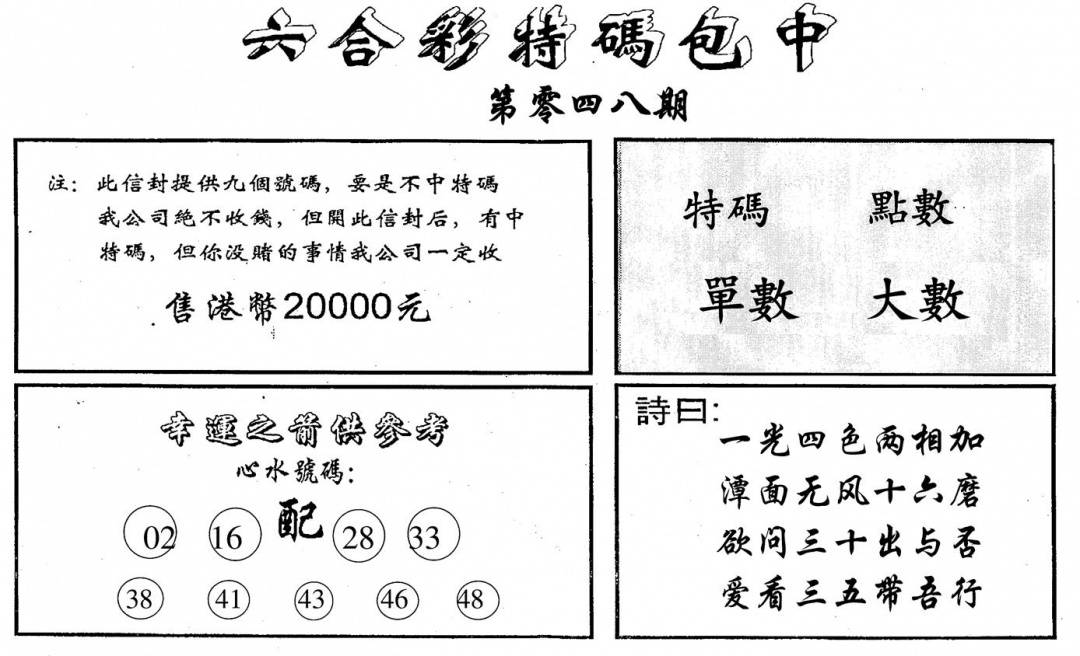 六合彩特碼包中
第零四八期
注：此信封提供九個號碼，要是不中特碼
我公司絶不收錢，但開此信封后，有中
特碼，但你没賭的事情我公司一定收
售港幣20000元
特碼 點數
單數 大數
幸運之箭供參考
心水號碼：
02 16 配 28 33
38 41 43 46 48
詩曰：
一光四色两相加
潭面无风十六磨
欲问三十出与否
爱看三五帶吾行